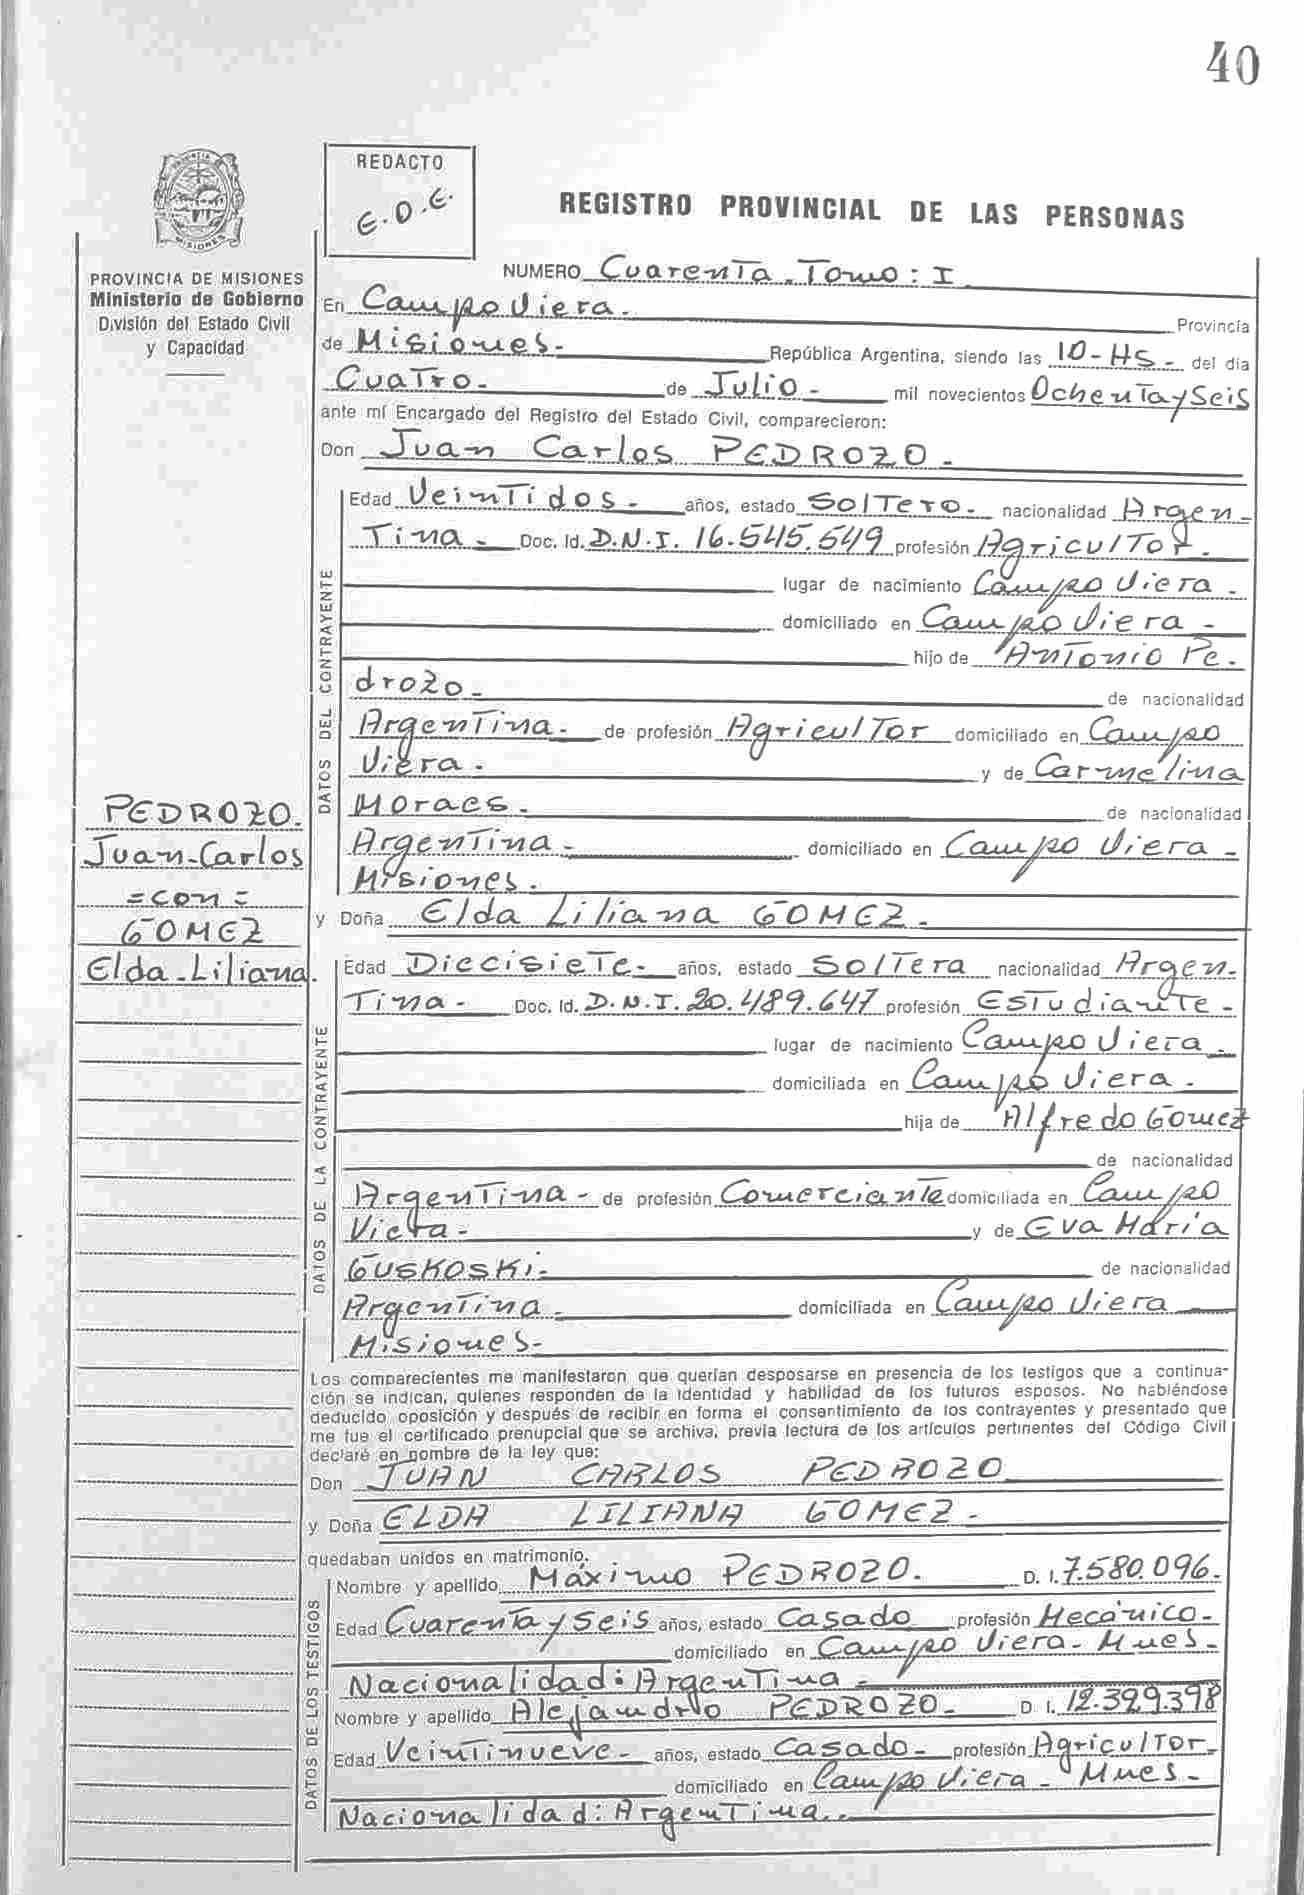 40
REDACTO
E.O.E.
REGISTRO PROVINCIAL DE LAS PERSONAS
PROVINCIA DE MISIONES
Ministerio de Gobierno
División del Estado Civil
y Capacidad
NUMERO Cuarenta. Tomo: I
En Campo Viera. Provincia
de Misiones. República Argentina, siendo las 10-HS- del día
Cuatro- de Julio- mil novecientos Ochenta y Seis
ante mí Encargado del Registro del Estado Civil, comparecieron:
Don Juan Carlos PEDROZO.
Edad Veintidos- años, estado Soltero- nacionalidad Argen-
Tina- Doc. Id. D.N.I. 16.545.549 profesión Agricultor.
lugar de nacimiento Campo Viera-
domiciliado en Campo Viera-
hijo de Antonio Pe-
drozo- de nacionalidad
Argentina- de profesión Agricultor domiciliado en Campo
Viera. y de Carmelina
Moraes. de nacionalidad
Argentina- domiciliado en Campo Viera-
Misiones.
PEDROZO.
Juan-Carlos
=con=
GOMEZ
Elda-Liliana.
y Doña Elda Liliana GOMEZ-
Edad Diecisiete- años, estado Soltera nacionalidad Argen-
Tina- Doc. Id. D.N.I. 20.489.647 profesión Estudiante-
lugar de nacimiento Campo Viera-
domiciliada en Campo Viera.
hija de Alfredo Gomez
de nacionalidad
Argentina- de profesión Comerciante domiciliada en Campo
Viera- y de Eva María
Guskoski- de nacionalidad
Argentina- domiciliada en Campo Viera
Misiones-
Los comparecientes me manifestaron que querían desposarse en presencia de los testigos que a continua-
ción se indican, quienes responden de la identidad y habilidad de los futuros esposos. No habiéndose
deducido oposición y después de recibir en forma el consentimiento de los contrayentes y presentado que
me fue el certificado prenupcial que se archiva, previa lectura de los artículos pertinentes del Código Civil
declaré en nombre de la ley que:
Don JUAN CARLOS PEDROZO
y Doña ELDA LILIANA GOMEZ-
quedaban unidos en matrimonio.
Nombre y apellido Máximo PEDROZO. D. I. 7.580.096.
Edad Cuarenta y Seis años, estado Casado profesión Mecánico-
domiciliado en Campo Viera- Mnes-
Nacionalidad: Argentina-
Nombre y apellido Alejandro PEDROZO- D. I. 12.329.398
Edad Veintinueve- años, estado Casado- profesión Agricultor-
domiciliado en Campo Viera- Mnes-
Nacionalidad: Argentina.-
DATOS DEL CONTRAYENTE
DATOS DE LA CONTRAYENTE
DATOS DE LOS TESTIGOS